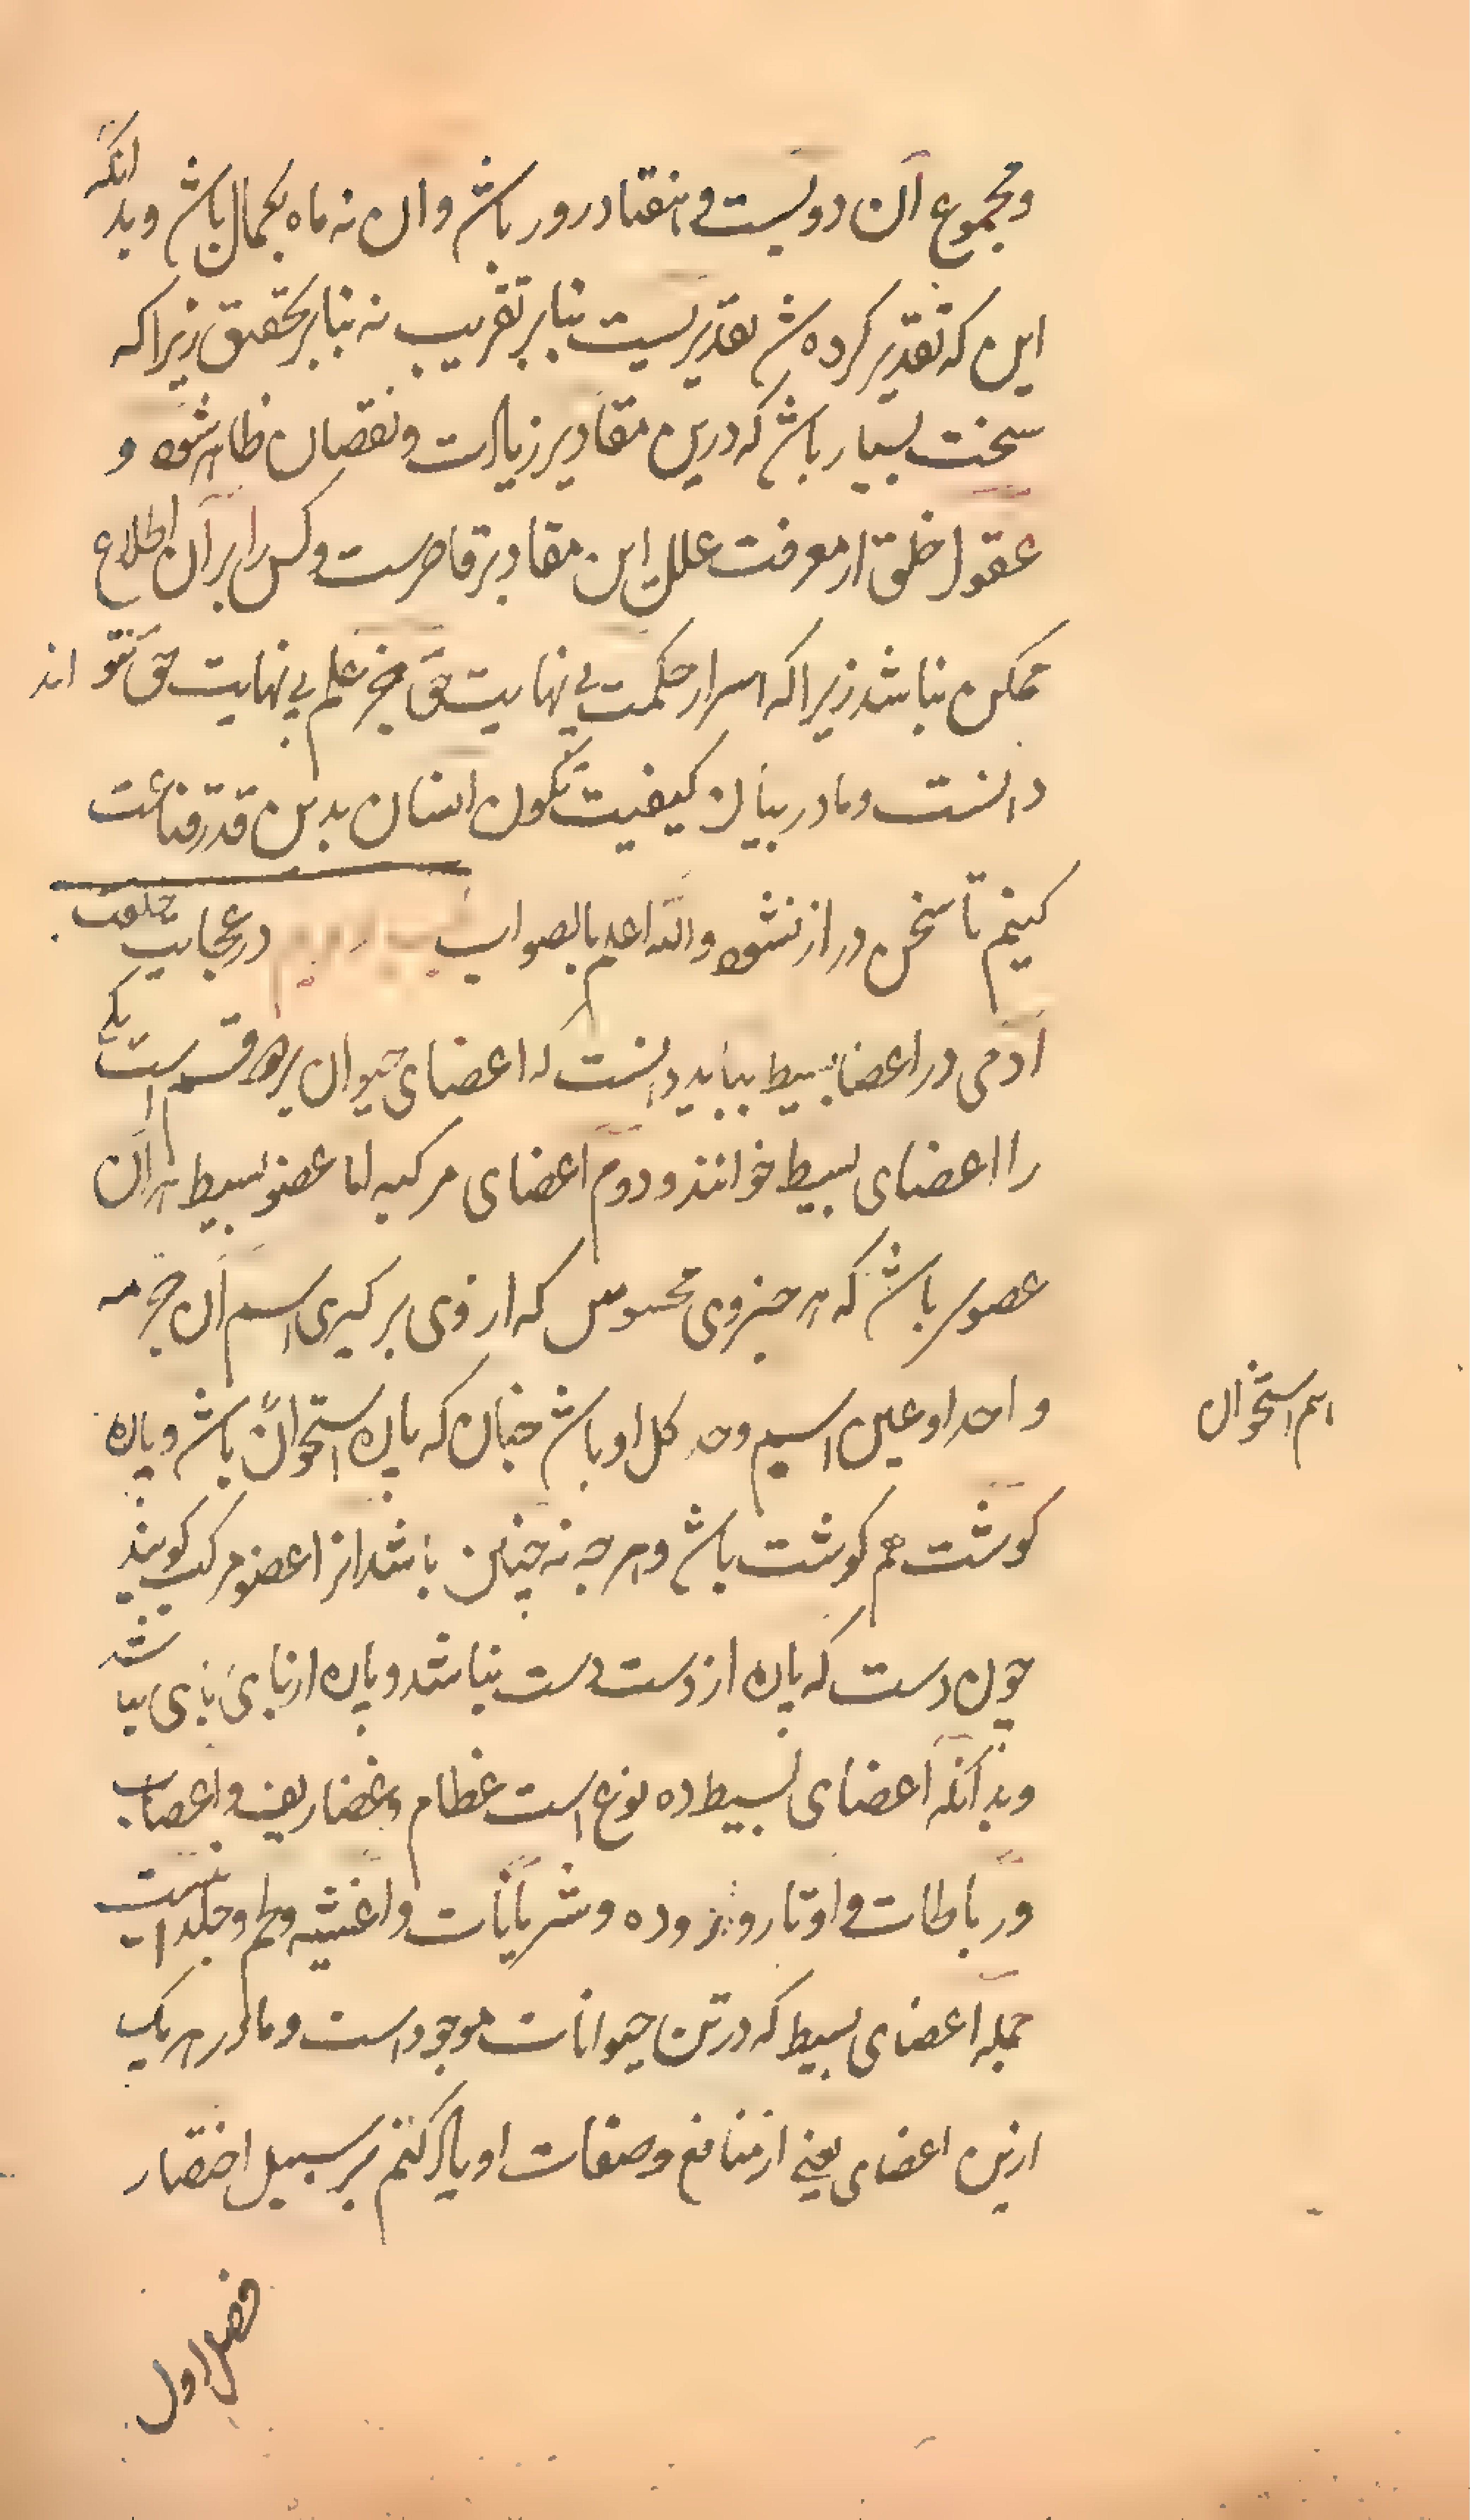 ومجموع آن دویست و هفتاد روز باشد وان نه ماه بکمال باشد وبدانکه
این که تقدیر کرده شد تقدیریست بنابر تقریب نه بنابر تحقیق زیرا که
سخت بسیار باشد که درین مقادیر زیادت و نقصان ظاهر شود و
عقول خلق از معرفت علل این مقادیر قاصرست وکس را بر آن اطلاع
ممکن نباشد زیرا که اسرار حکمت بی نهایت حق جز علم بی نهایت حق نتواند
دانست وما در بیان کیفیت تکون انسان بدین قدر قناعت
کینم تا سخن دراز نشود والله اعلم بالصواب در عجایب خلقت
آدمی در اعضا بسیط بباید دانست که اعضای حیوان بر دو قسم است یکی
را اعضای بسیط خوانند و دوم اعضای مرکبه اما عضو بسیط هر آن
عضوی باشد که هر جزوی محسوس که از وی بر کیری اسم آن جزو
واحد او عین اسم وحد کل او باشد چنان که پاره استخوان باشد وپاره
هم استخوان
کوشت هم کوشت باشد وهر چه نه چنین باشد انرا عضو مرکب کویند
چون دست که پاره از دست دست نباشد وپاره از پای پای نباشد
وبدانکه اعضای بسیط ده نوع است عظام وغضاریف واعصاب
ورباطات واوتار و وشریانات واغشیه ولحم وجلد اینست
جمله اعضای بسیط که در تن حیوانات موجود است وما در هر یک
ازین اعضای یعنی از منافع وصفات او یاد کنیم بر سبیل اختصار
فصل اول